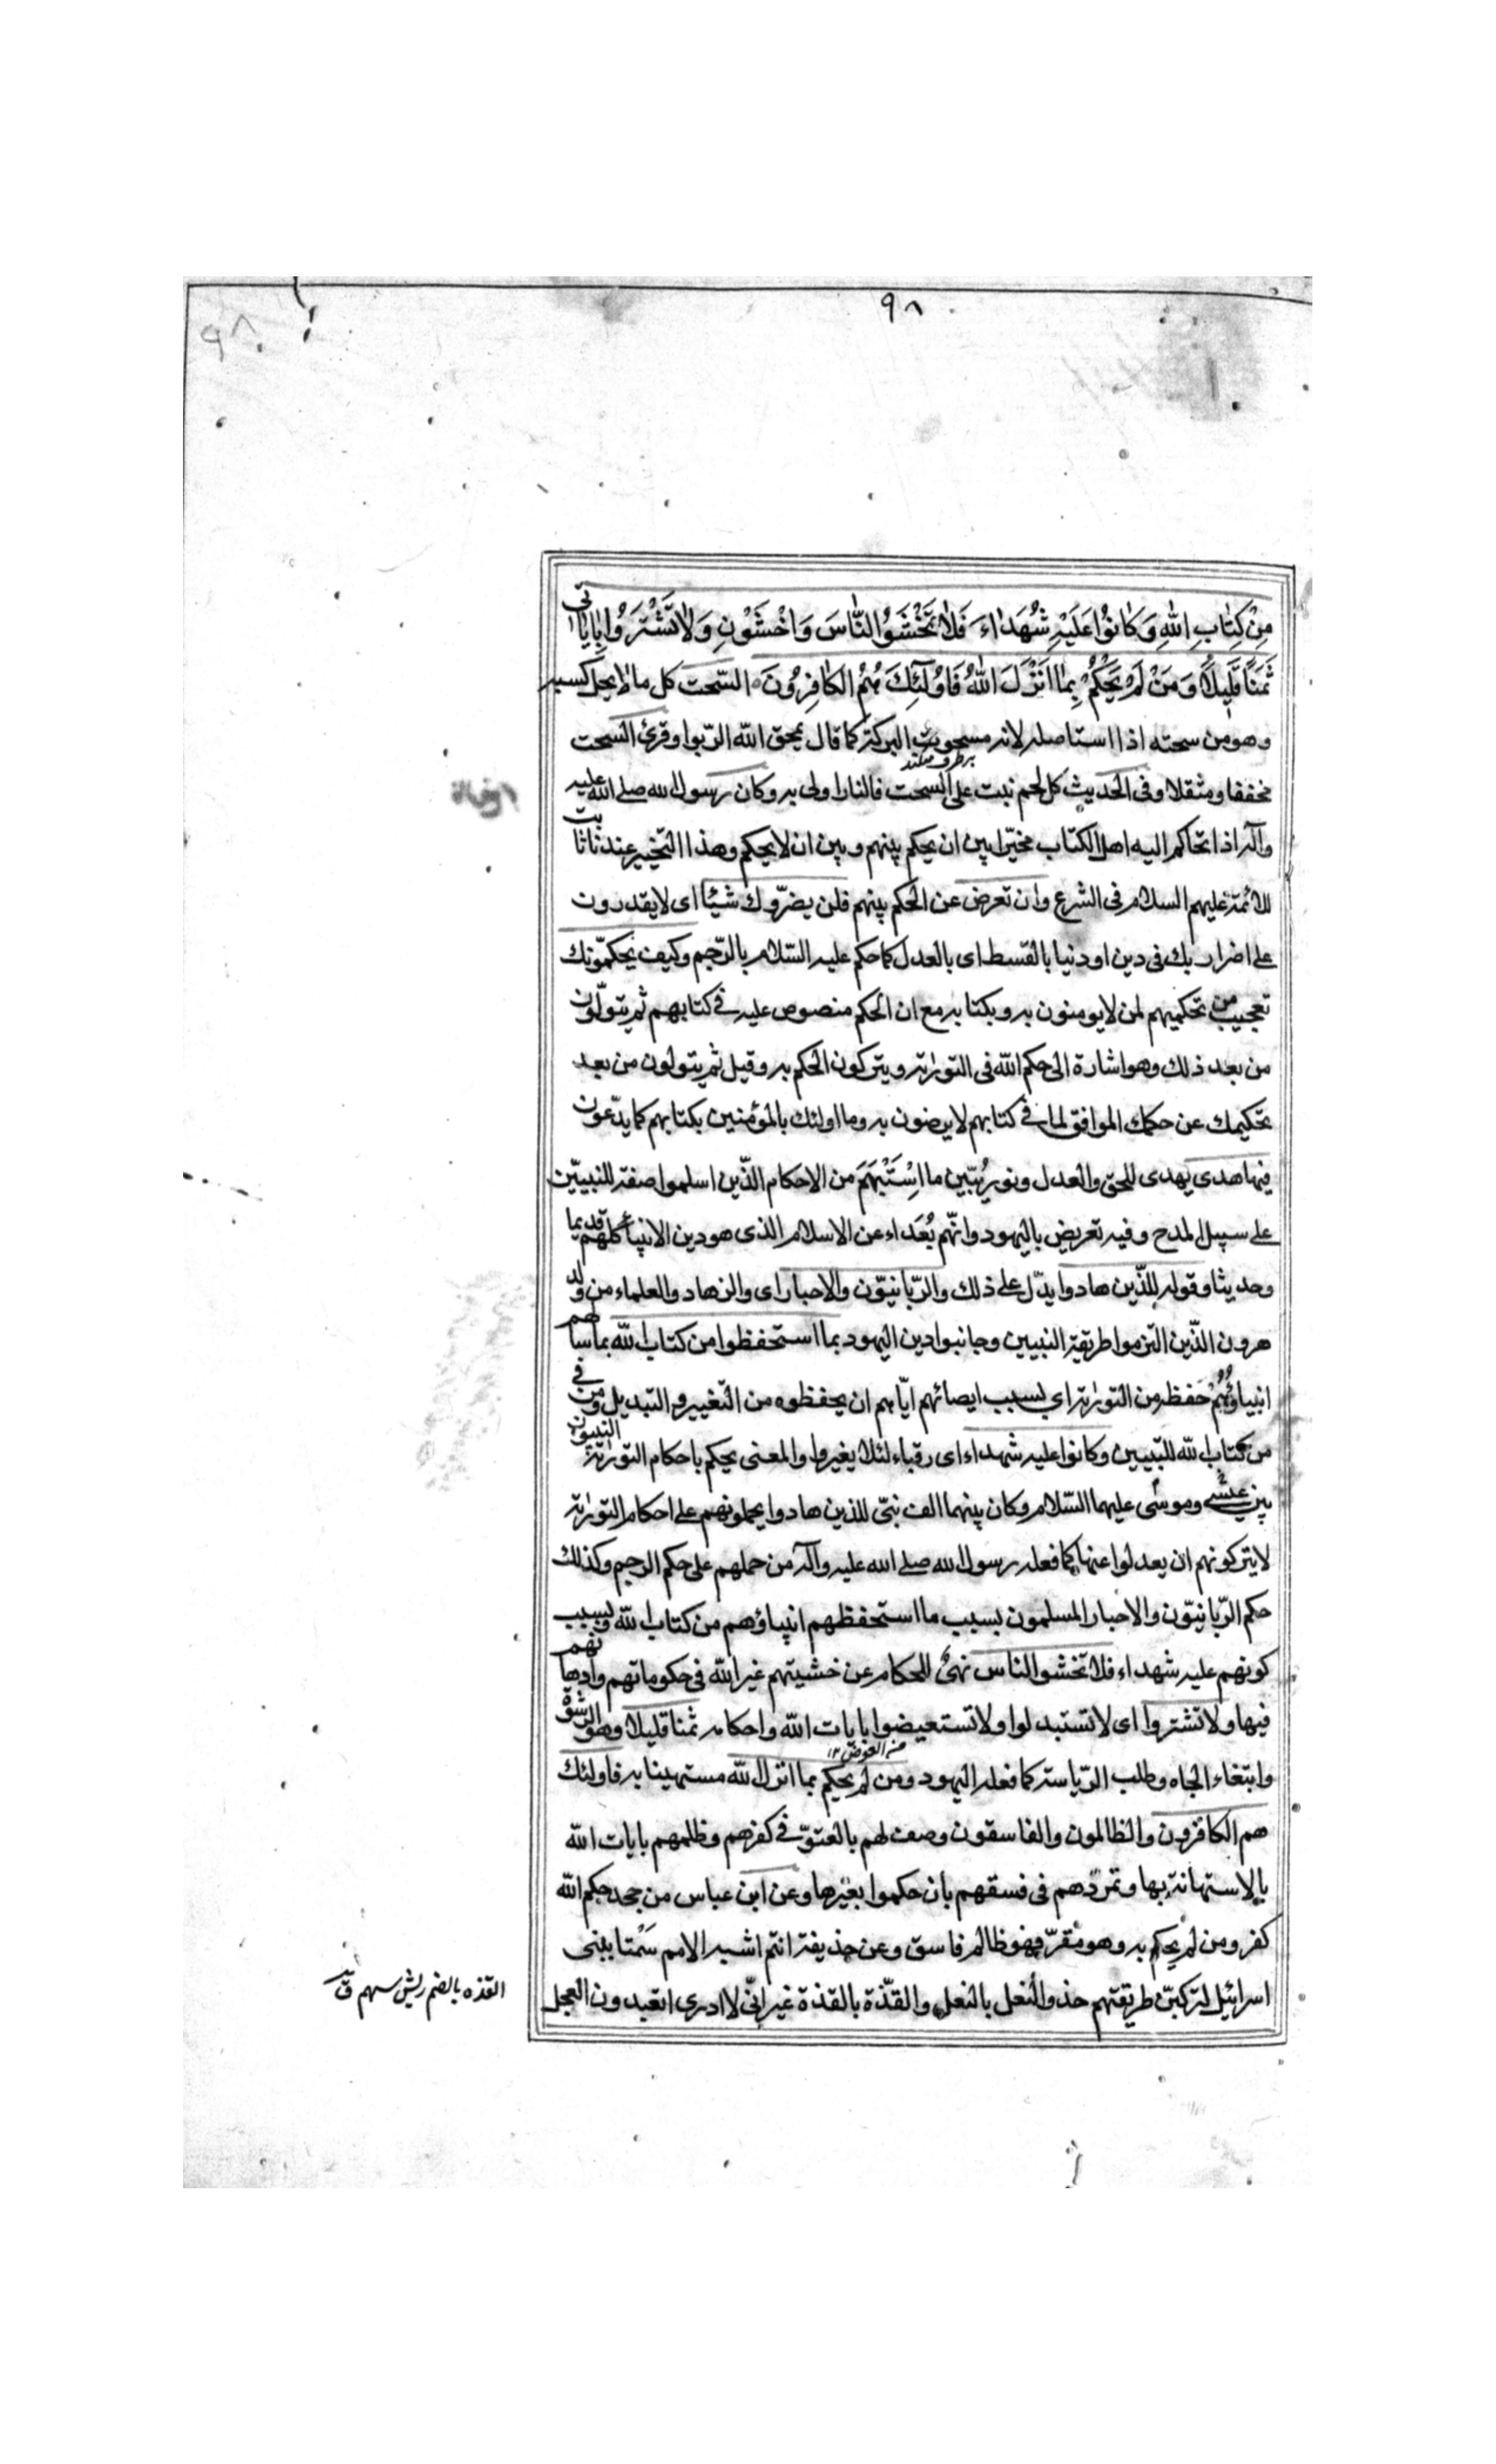 ٩٨
٩٨
مِنْ كِتَابِ اللهِ وَكَانُوا عَلَيْهِ شُهَدَاءَ فَلَا تَخْشَوُا النَّاسَ وَاخْشَوْنِ وَلَا تَشْتَرُوا بِاٰيَاتِى
ثَمَنًا قَلِيلًا وَمَنْ لَمْ يَحْكُمْ بِمَا اَنْزَلَ اللهُ فَاُولٰئِكَ هُمُ الْكَافِرُونَ السّحت كل ما لا يحل كسبه
وهو من سحته اذا استاصله لانه مسحوت البركة كما قال يمحق الله الرّبوا وقرئ السّحت
برطرف ميكند
مخففا ومثقلا وفى الحديث كل لحم نبت على السحت فالنار اولى به وكان رسول الله صلى الله عليه
وآله اذا تحاكم اليه اهل الكتاب مخيّرا بين ان يحكم بينهم وبين ان لا يحكم وهذا التخيير عندنا ثابت
للائمّة عليهم السلام فى الشرع وان تعرض عن الحكم بينهم فلن يضرّوك شيئا اى لا يقدرون
على اضرار بك فى دين او دنيا بالقسط اى بالعدل كما حكم عليه السّلام بالرّجم وكيف يحكّمونك
تعجيب من تحكيمهم لمن لا يومنون به وبكتابه مع ان الحكم منصوص عليه فى كتابهم ثم يتولّون
من بعد ذلك وهو اشارة الى حكم الله فى التورٰية ويتركون الحكم به وقيل ثم يتولون من بعد
تحكيمك عن حكمك الموافق لما فى كتابهم لا يرضون به وما اولئك بالمؤمنين بكتابهم كما يدّعون
فيها هدى يهدى للحق والعدل ونور يُبيّن ما اسْتَبْهَمَ من الاحكام الذّين اسلموا صفة للنبيّين
على سبيل المدح وفيه تعريض باليهود وانّهم بُعَداء عن الاسلام الذى هو دين الانبياء كلهم قديما
وحديثا وقوله للذّين هادوا يدّل على ذلك والرّبانيّون والاحبار اى والزهاد والعلماء من ولد
هرون الذّين التزموا طريقة النبيين وجانبوا دين اليهود بما استحفظوا من كتاب الله بما سالهم
انبياؤُهُمْ حفظه من التورٰية اى بسبب ايصائهم ايّاهم ان يحفظوه من التّغيير والتبديل ومن فى
من كتاب الله للتبيين وكانوا عليه شهداء اى رقباء لئلا يغيروا والمعنى يحكم باحكام التورٰية النبيون
بين عيسٰى وموسٰى عليهما السّلام وكان بينهما الف نبىّ للذين هادوا يحملونهم على احكام التورٰية
لا يتركونهم ان يعدلوا عنها كما فعله رسول الله صلى الله عليه وآله من حملهم على حكم الرجم وكذلك
حكم الرّبانيّون والاحبار المسلمون بسبب ما استحفظهم انبياؤهم من كتاب الله وبسبب
كونهم عليه شهداء فلا تخشوا الناس نهىٌ للحكام عن خشيتهم غير الله فى حكوماتهم وادهانهم
فيها ولا تشتروا اى لا تستبدلوا ولا تستعيضوا بايات الله واحكامه ثمنا قليلا وهو الرشوة
منه العوض ١٢
وابتغاء الجاه وطلب الرّياسة كما فعله اليهود ومن لم يحكم بما انزل الله مستهينا به فاولئك
هم الكافرون والظالمون والفاسقون وصف لهم بالعتوّ فى كفرهم وظلمهم بايات الله
بالاستهانة بها وتمرّدهم فى فسقهم بان حكموا بغيرها وعن ابن عباس من جحد حكم الله
كفر ومن لم يحكم به وهو مُقرّ فهو ظالم فاسق وعن حذيفة انتم اشبه الامم سَمْتا ببنى
اسرائيل لتركبنّ طريقتهم حذو النّعل بالنعل والقذّة بالقذة غير انّى لا ادرى اتعبدون العجل
القذه بالضم ريش سهم ق